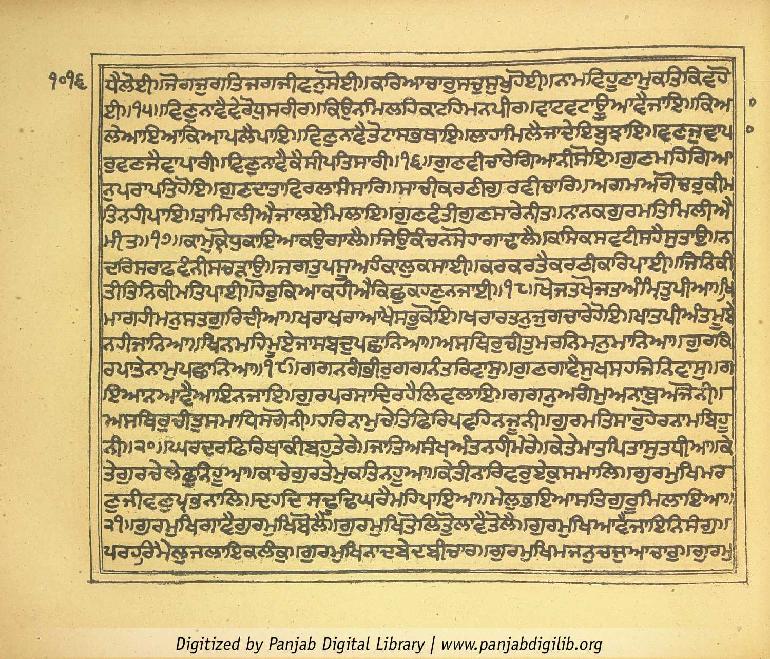 ੧੦੧੬
ਧੈਲੋਈ॥ਜੋਗਜੁਗਤਿਜਗਜੀਵਨੁਸੋਈ॥ਕਰਿਆਚਾਰੁਸਚੁਸੁਖੁਹੋਈ॥ਨਾਮਵਿਹੂਣਾਮੁਕਤਿਕਿਵਹੋ
ਈ॥੧੫॥ਵਿਣੁਨਾਵੈਵੇਰੋਧੁਸਰੀਰ॥ਕਿਉਨਮਿਲਹਿਕਾਟਹਿਮਨਪੀਰ॥ਵਾਟਵਟਾਊਆਵੈਜਾਇ॥ਕਿਆ
ਲੇਆਇਆਕਿਆਪਲੈਪਾਇ॥ਵਿਣੁਨਾਵੈਤੋਟਾਸਭਥਾਇ॥ਲਾਹਾਮਿਲੈਜਾਦੇਇਬੁਝਾਇ॥ਵਣਜੁਵਾਪਾ
ਰੁਵਣਜੈਵਾਪਾਰੀ॥ਵਿਣੁਨਾਵੈਕੈਸੀਪਤਿਸਾਰੀ॥੧੬॥ਗੁਣਵੀਚਾਰੇਗਿਆਨੀਸੋਇ॥ਗੁਣਮਹਿਗਿਆ
ਨੁਪਰਾਪਤਿਹੋਇ॥ਗੁਣਦਾਤਾਵਿਰਲਾਸੰਸਾਰਿ॥ਸਾਚੀਕਰਣੀਗੁਰਵੀਚਾਰਿ॥ਅਗਮਅਗੋਚਰੁਕੀਮ
ਤਿਨਹੀਪਾਇ॥ਤਾਮਿਲੀਐਜਾਲਏਮਿਲਾਇ॥ਗੁਣਵੰਤੀਗੁਣਸਾਰੇਨੀਤ॥ਨਾਨਕਗੁਰਮਤਿਮਿਲੀਐ
ਮੀਤ॥੧੭॥ਕਾਮੁਕ੍ਰੋਧੁਕਾਇਆਕਉਗਾਲੈ॥ਜਿਉਕੰਚਨਸੋਹਾਗਾਢਾਲੈ॥ਕਸਿਕਸਵਟੀਸਹੈਸੁਤਾਉ॥ਨ
ਦਰਿਸਰਾਫਵੰਨੀਸਚੜਾਉ॥ਜਗਤੁਪਸੂਅਹੰਕਾਲੁਕਸਾਈ॥ਕਰਕਰਤੈਕਰਣੀਕਰਿਪਾਈ॥ਜਿਨਿਕੀ
ਤੀਤਿਨਿਕੀਮਤਿਪਾਈ॥ਹੋਰਕਿਆਕਹੀਐਕਿਛੁਕਹਣੁਨਜਾਈ॥੧੮॥ਖੋਜਤਖੋਜਤਅੰਮ੍ਰਿਤੁਪੀਆ॥ਖਿ
ਮਾਗਹੀਮਨੁਸਤਗੁਰਿਦੀਆ॥ਖਰਾਖਰਾਆਖੈਸਭੁਕੋਇ॥ਖਰਾਰਤਨੁਜੁਗਚਾਰੇਹੋਇ॥ਖਾਤਪੀਅੰਤਮੂਏ
ਨਹੀਜਾਨਿਆ॥ਖਿਨਮਹਿਮੂਏਜਾਸਬਦੁਪਛਾਨਿਆ॥ਅਸਥਿਰੁਚੀਤੁਮਰਨਿਮਨੁਮਾਨਿਆ॥ਗੁਰਕਿ
ਰਪਾਤੇਨਾਮੁਪਛਾਨਿਆ॥੧੯॥ਗਗਨਗੰਭੀਰੁਗਗਨੰਤਰਿਵਾਸੁ॥ਗੁਣਗਾਵੈਸੁਖਸਹਜਿਨਿਵਾਸੁ॥ਗ
ਇਆਨਆਵੈਆਇਨਜਾਇ॥ਗੁਰਪਰਸਾਦਿਰਹੈਲਿਵਲਾਇ॥ਗਗਨੁਅਗੰਮੁਅਨਾਥੁਅਜੋਨੀ॥
ਅਸਥਿਰੁਚੀਤੁਸਮਾਧਿਸਗੋਨੀ॥ਹਰਿਨਾਮੁਚੇਤਿਫਿਰਿਪਵਹਿਨਜੂਨੀ॥ਗੁਰਮਤਿਸਾਰੁਹੋਰਨਾਮਬਿਹੂ
ਨੀ॥੨੦॥ਘਰਦਰਫਿਰਿਥਾਕੀਬਹੁਤੇਰੇ॥ਜਾਤਿਅਸੰਖਅੰਤਨਹੀਮੇਰੇ॥ਕੇਤੇਮਾਤਪਿਤਾਸੁਤਧੀਆ॥ਕੇ
ਤੇਗੁਰਚੇਲੇਫੁਨਿਹੂਆ॥ਕਾਚੇਗੁਰਤੇਮੁਕਤਿਨਹੂਆ॥ਕੇਤੀਨਾਰਿਵਰੁਏਕੁਸਮਾਲਿ॥ਗੁਰਮੁਖਿਮਰ
ਣੁਜੀਵਣੁਪ੍ਰਭਨਾਲਿ॥ਦਹਦਿਸਢੂਢਿਘਰੈਮਹਿਪਾਇਆ॥ਮੇਲੁਭਇਆਸਤਿਗੁਰੂਮਿਲਾਇਆ॥
੨੧॥ਗੁਰਮੁਖਿਗਾਵੈਗੁਰਮੁਖਿਬੋਲੈ॥ਗੁਰਮੁਖਿਤੋਲਿਤੋੁਲਾਵੈਤੋਲੈ॥ਗੁਰਮੁਖਿਆਵੈਜਾਇਨਿਸੰਗੁ॥
ਪਰਹਰਿਮੈਲੁਜਲਾਇਕਲੰਕੁ॥ਗੁਰਮੁਖਿਨਾਦਬੇਦਬੀਚਾਰੁ॥ਗੁਰਮੁਖਿਮਜਨੁਚਜੁਆਚਾਰੁ॥ਗੁਰਮੁ
Digitized by Panjab Digital Library | www.panjabdigilib.org